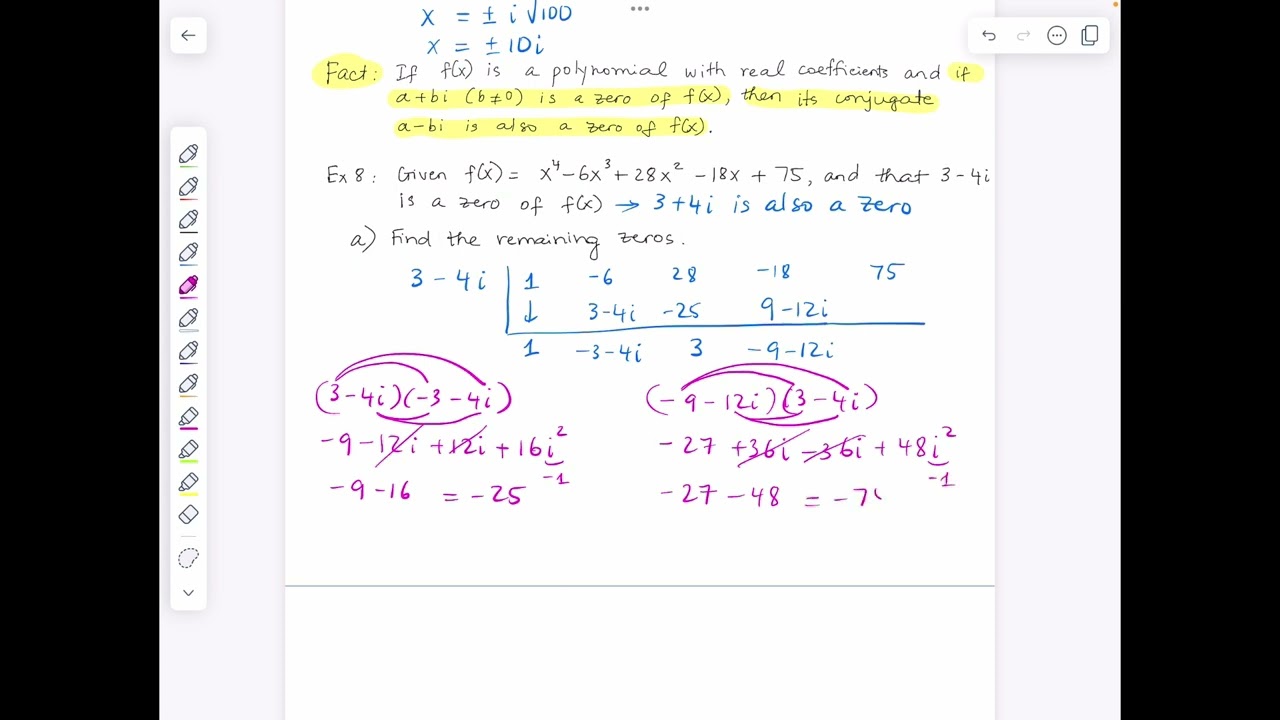 x = ± i √100
x = ± 10i
Fact: If f(x) is a polynomial with real coefficients and if
a+bi (b≠0) is a zero of f(x), then its conjugate
a-bi is also a zero of f(x).
Ex 8: Given f(x) = x⁴ - 6x³ + 28x² - 18x + 75, and that 3-4i
is a zero of f(x) → 3+4i is also a zero
a) Find the remaining zeros.
3 - 4i | 1 -6 28 -18 75
↓ 3-4i -25 9-12i
1 -3-4i 3 -9-12i
(3-4i)(-3-4i) (-9-12i)(3-4i)
-9 -12i +12i +16i² -27 +36i -36i +48i²
-1 -1
-9 -16 = -25 -27 -48 = -7